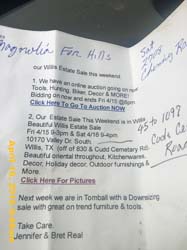 Magnolia Far Hills
Sat
our Willis Estate Sale this weekend.
1. We have an online auction going on now
Tools, Hunting, Biker, Decor & MORE!
Bidding on now and ends Fri 4/15 @8pm
Click Here To Go To Auction NOW
2. Our Estate Sale This Weekend is in Willis
Beautiful Willis Estate Sale
Fri 4/15 9-3pm & Sat 4/16 9-4pm
10170 Valley Dr. South
Willis, TX (off of 830 & Cude Cemetery Rd)
Beautiful oriental throughout, Kitchenwares,
Decor, Holiday decor, Outdoor furnishings &
More.
Click Here For Pictures
45 to 1097
Next week we are in Tomball with a Downsizing
sale with great on trend furniture & tools.
Take Care,
Jennifer & Bret Real